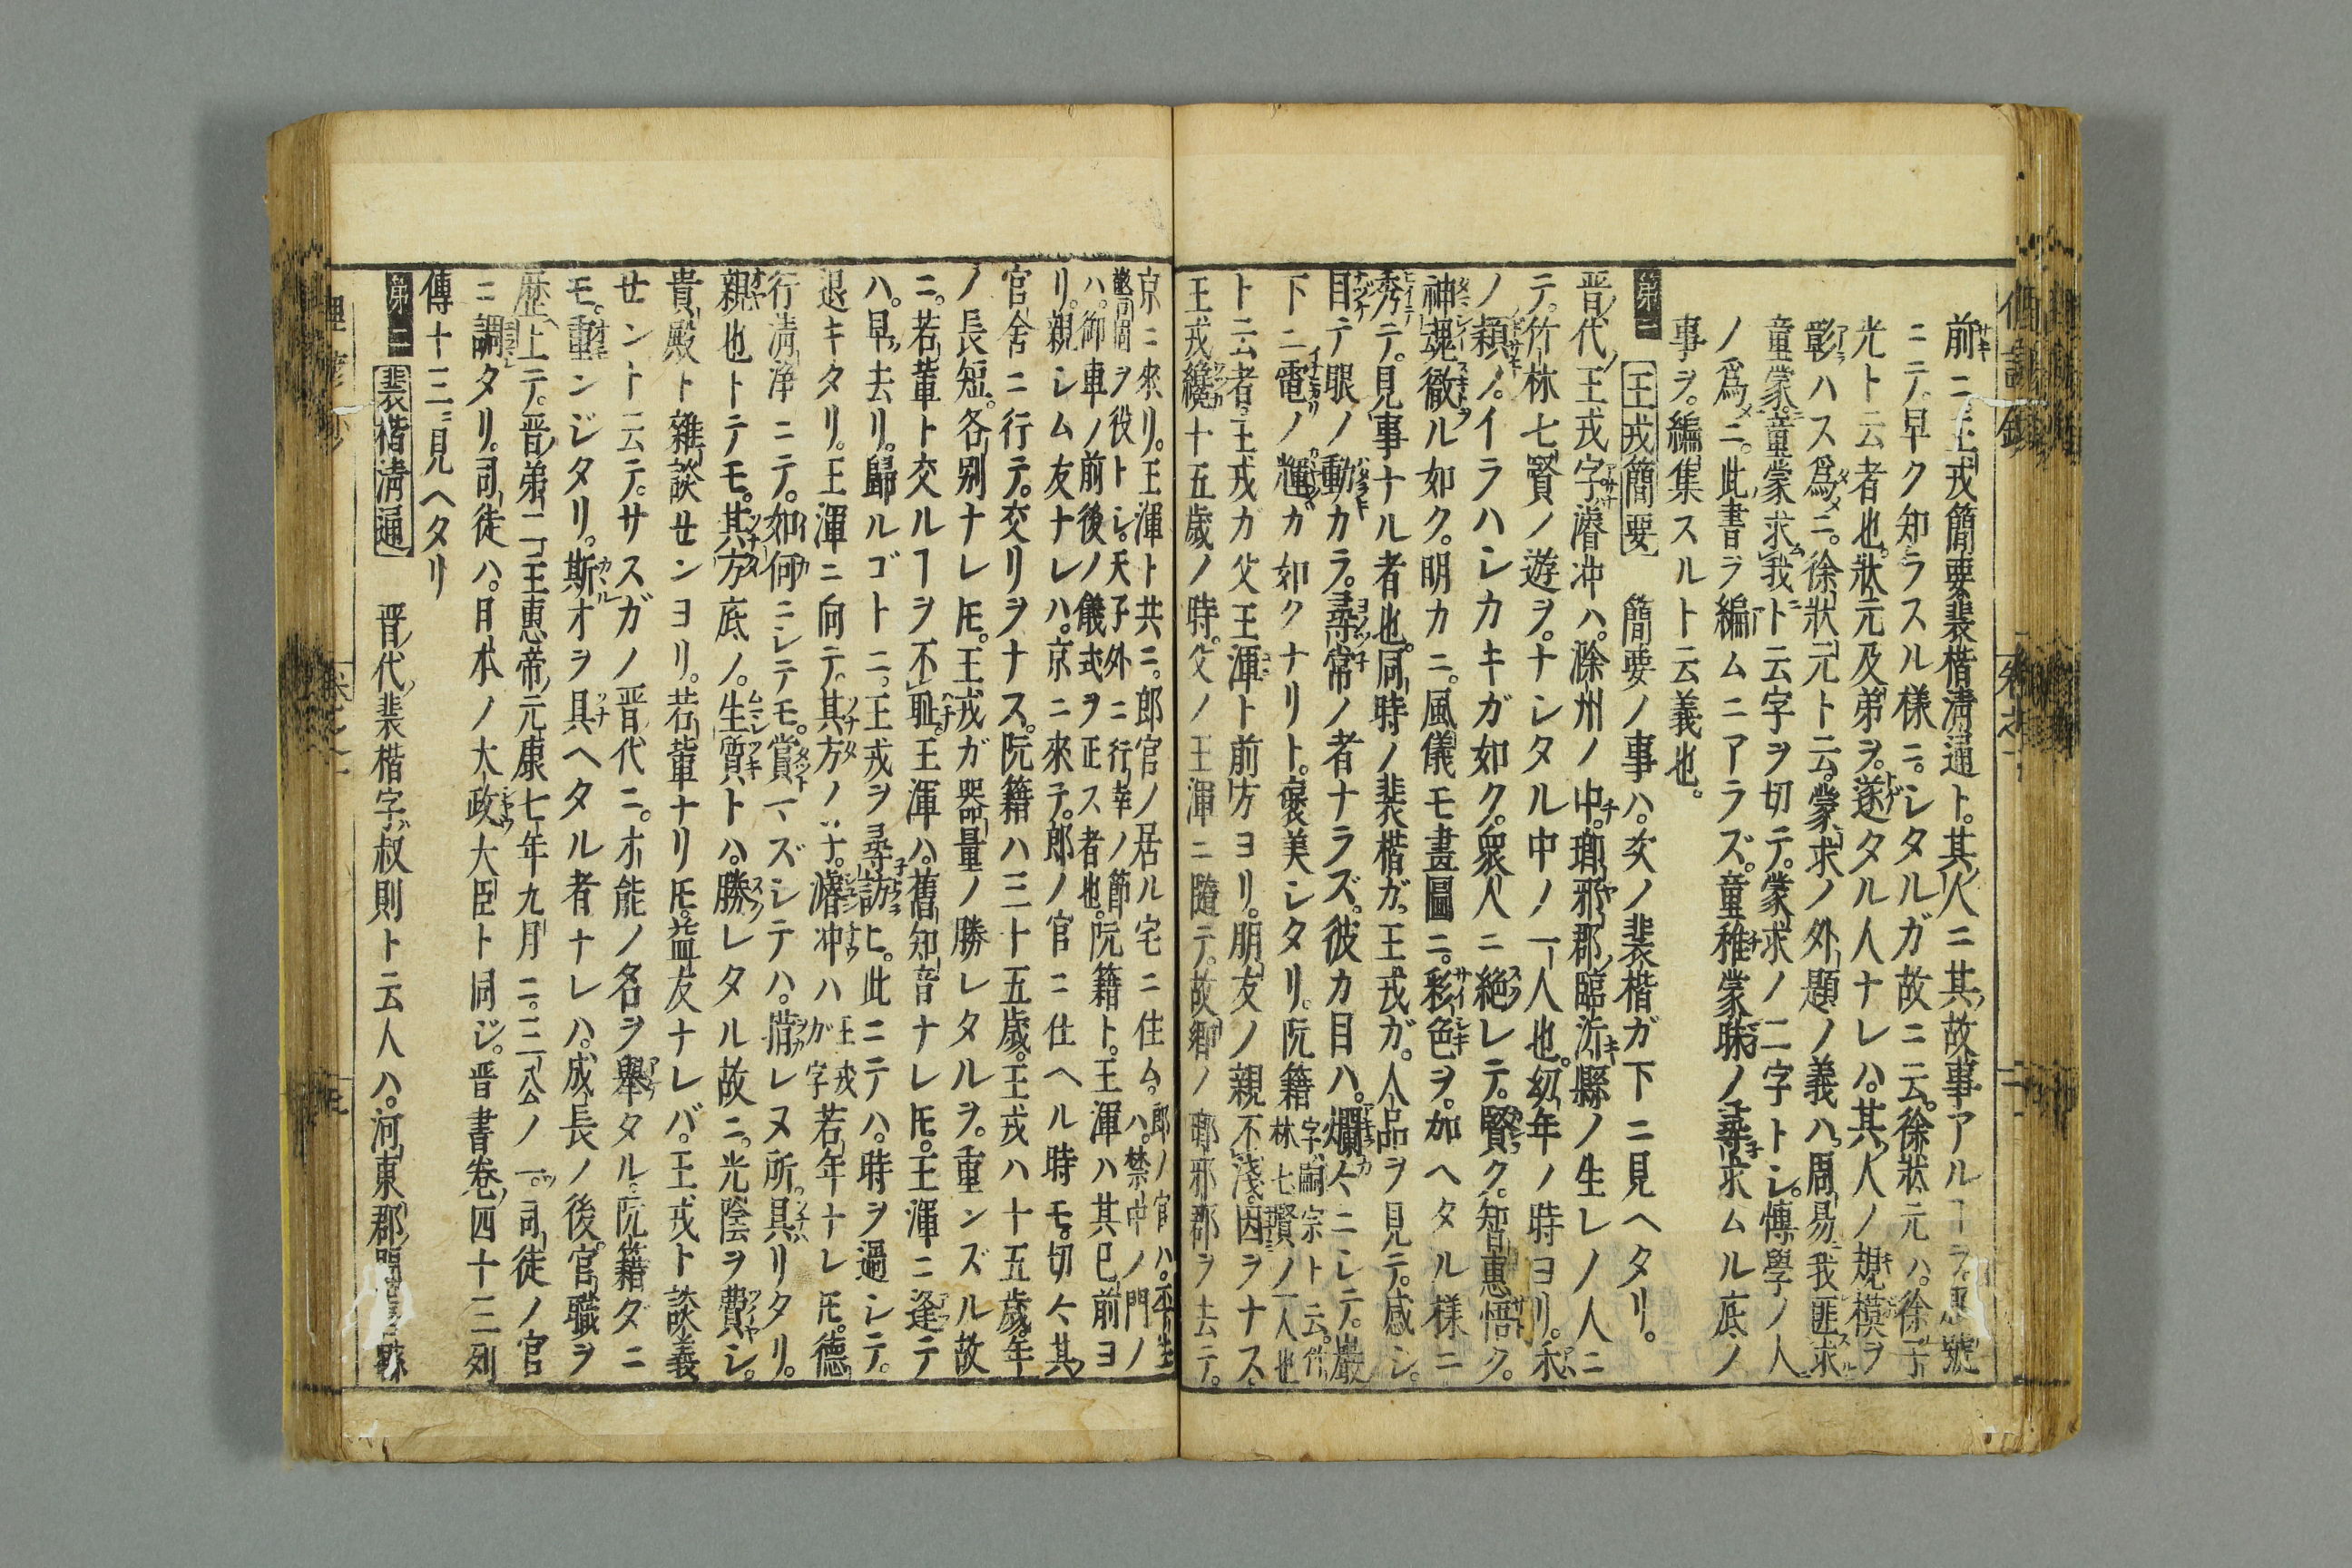 前ニ王戎簡要裴楷清通ト。其人ニ其故事アルヿヲ 號
ニテ。早ク知ラスル様ニ。シタルガ故ニ云。徐狀元ハ。徐子
光ト云者也。狀元及弟ヲ。遂タル人ナレハ。其人ノ規模ヲ
彰ハス爲ニ。徐狀元ト云。蒙求ノ外題ノ義ハ。周易我匪求
童蒙。童蒙求我ト云字ヲ切テ。蒙求ノ二字トシ。博學ノ人
ノ爲ニ。此書ヲ編ムニアラズ。童稚蒙昧ノ尋求ムル底ノ
事ヲ。編集スルト云義也。
第一 王戎簡要 簡要ノ事ハ。次ノ裴楷ガ下ニ見ヘタリ。
晋代王戎字濬冲ハ。滁州ノ中。瑯邪郡臨沂縣ノ生レノ人ニ
テ。竹林七賢ノ遊ヲ。ナシタル中ノ一人也。幼年ノ時ヨリ。禾
ノ穎ノ。イラハシカキガ如ク。衆人ニ絶レテ。賢ク。智惠悟ク。
神魂徹ル如ク。明カニ。風儀モ畫圖ニ。彩色ヲ。加ヘタル様ニ
秀テ。見事ナル者也。同時ノ裴楷ガ。王戎ガ。人品ヲ見テ。感シ。
目テ眼ノ動カラ。尋常ノ者ナラズ。彼カ目ハ。爛々ニシテ。巖
下ニ電ノ輝カ如クナリト。褒美シタリ。阮籍字嗣宗ト云。竹林七賢ノ一人也
ト云者。王戎ガ父王渾ト前方ヨリ。朋友ノ親不淺。因ヲナス。
王戎纔十五歳ノ時。父ノ王渾ニ隨テ。故郷ノ瑯邪郡ヲ去テ。
京ニ來リ。王渾ト共ニ。郎官ノ居ル宅ニ住ム。郎ノ官ハ。平生ハ。禁中ノ門ノ
ヲ役トシ。天子外ニ行幸ノ節ハ。御車ノ前後ノ儀式ヲ正ス者也。阮籍ト。王渾ハ其已前ヨ
リ。親シム友ナレハ。京ニ來テ。郎ノ官ニ仕ヘル時モ。切々其
官舍ニ行テ。交リヲナス。阮籍ハ三十五歳。王戎ハ十五歳。年
ノ長短。各別ナレ𪜈。王戎ガ器量ノ勝レタルヲ。重ンズル故
ニ。若輩ト交ルヿヲ不耻。王渾ハ。舊知音ナレ𪜈。王渾ニ逢テ
ハ。早去リ。歸ルゴトニ。王戎ヲ尋訪ヒ。此ニテハ。時ヲ過シテ。
退キタリ。王渾ニ向テ。其方ノ子。濬冲ハ王戎ガ字若年ナレ𪜈。德
行清淨ニテ。如何ニシテモ。賞マズシテハ。措レヌ所具リタリ。
親也トテモ。其方底ノ。生質トハ。勝レタル故ニ。光陰ヲ費シ。
貴殿ト雜談センヨリ。若輩ナリ𪜈。益友ナレバ。王戎ト談義
セント云テ。サスガノ晋代ニ。才能ノ名ヲ舉タル。阮籍ダニ
モ。重ンジタリ。斯オヲ具ヘタル者ナレハ。成長ノ後。官職ヲ
歴上テ。晋弟二王惠帝元康七年九月ニ。三公ノ一。司徒ノ官
ニ調タリ。司徒ハ。日本ノ大政大臣ト同ジ。晋書卷四十三列
傳十三ニ見ヘタリ
第二 裴楷清通 晋代裴楷字叔則ト云人ハ。河東郡聞喜縣